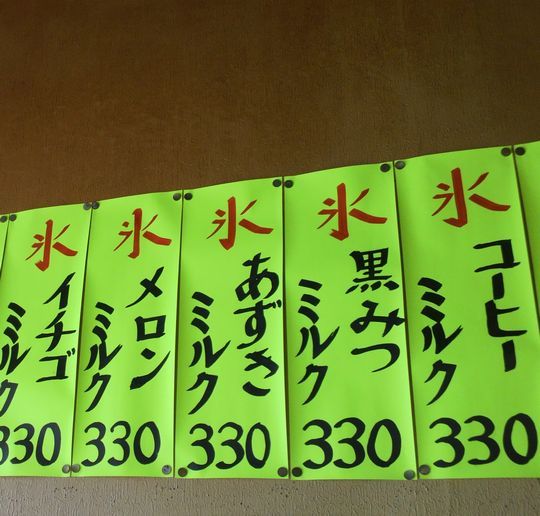 氷
コーヒー
ミルク
330
氷
黒みつ
ミルク
330
氷
あずき
ミルク
330
氷
メロン
ミルク
330
氷
イチゴ
ミルク
330